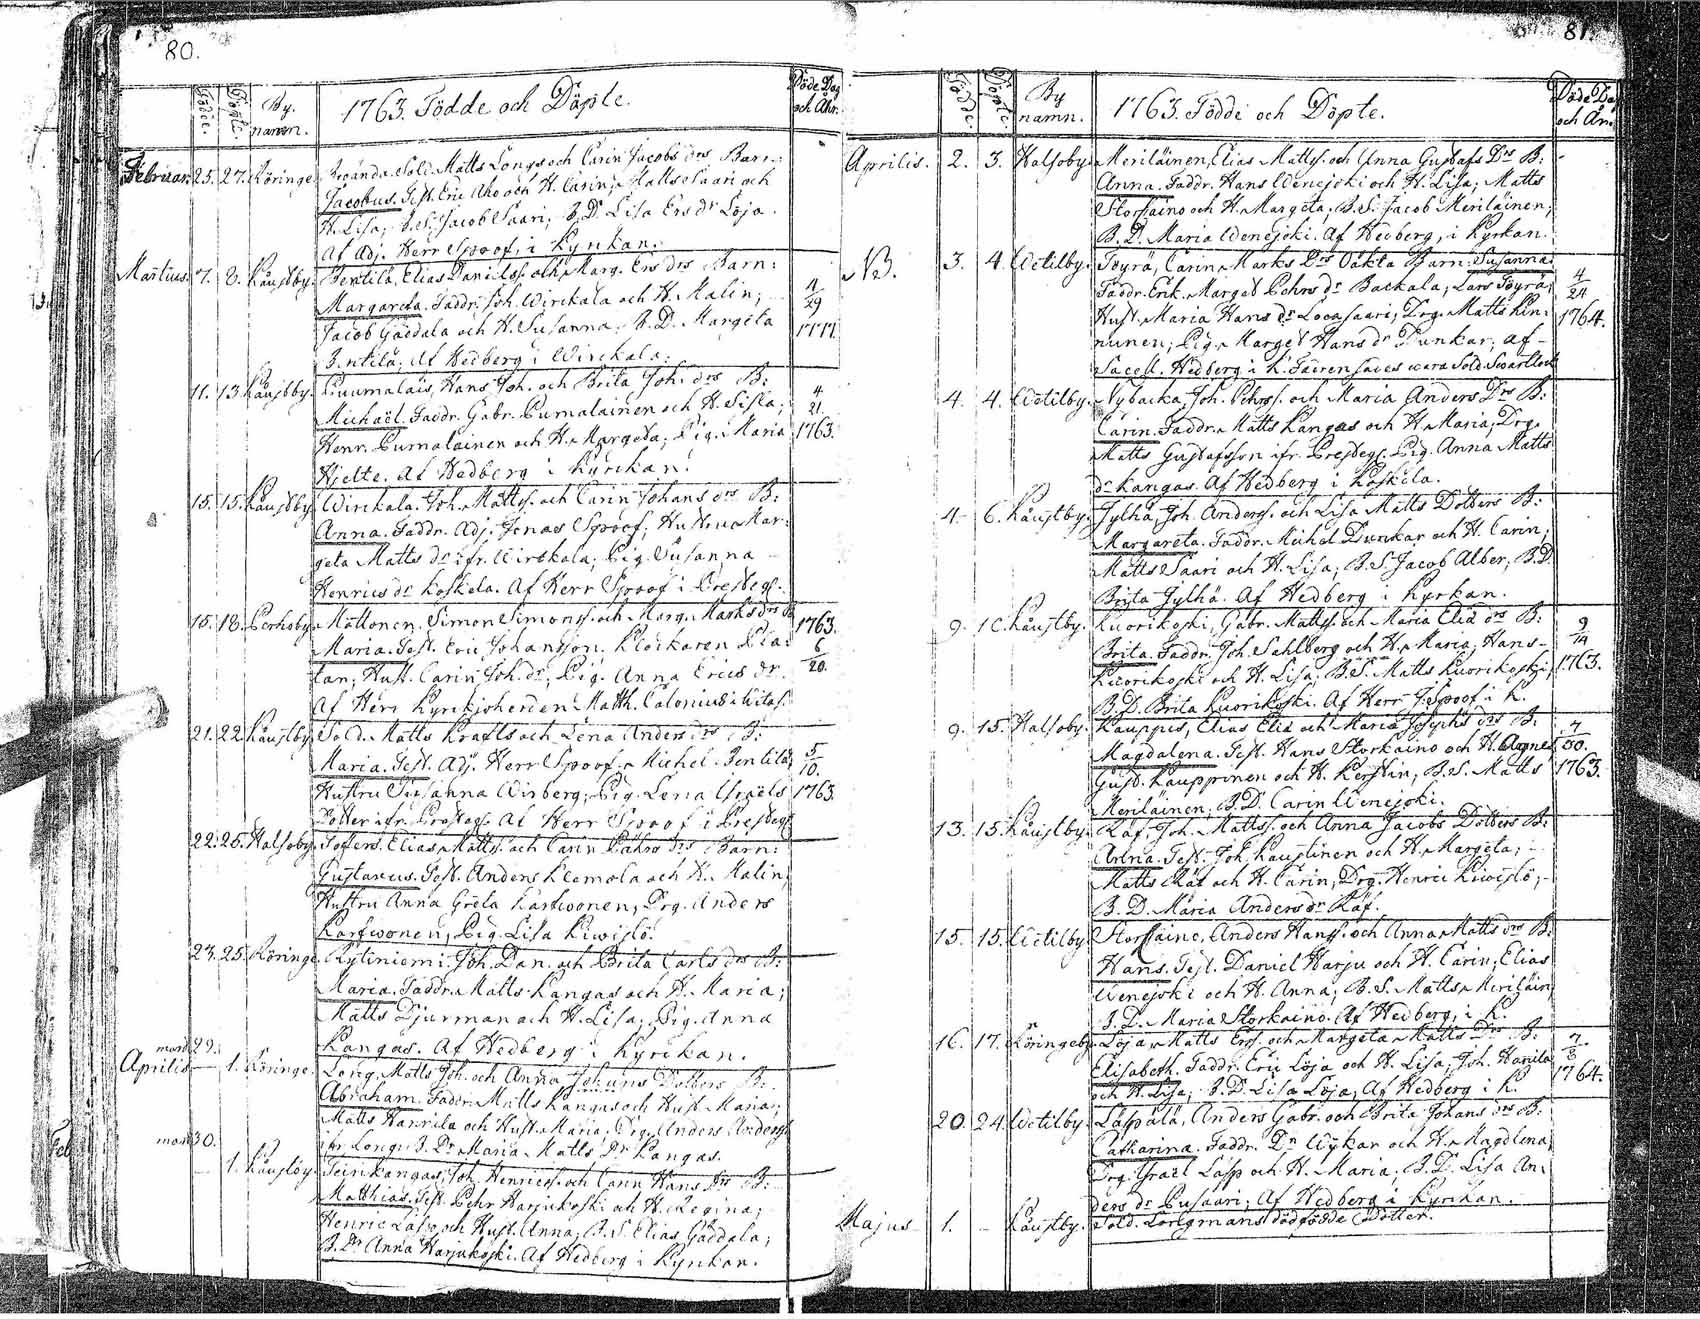 80.
Födde. Döpte. By namn. 1763. Födde och Döpte. Döde Dag och Åhr.
Februar. 25. 27. Röringe. Sold. Matts Longs och Carin Jacobs drs Barn:
Jacobus. Test. Eric Aho och H. Carin; Matts Saari och
H. Lisa; B.S. Jacob Saari; B.D. Lisa Ers dr Löja.
Af Adj. Herr Spoof, i Kyrkan.
Martius. 7. 8. Kaustby. Pentilä, Elias Danielss. och Marg. Ers drs Barn:
Margareta. Faddr. Joh. Wirckala och H. Malin; 4/29
Jacob Gäddala och H. Susanna; B.D. Margeta 1777.
Pentilä; Af Hedberg i Wirckala.
11. 13. Kaustby. Puumalais, Hans Joh. och Brita Joh. drs B:
Michaël. Faddr. Gabr. Pumalainen och H. Siska; 4/21.
Henr. Pumalainen och H. Margeta; Pig. Maria 1763.
Hjelte. Af Hedberg i Kyrckan.
15. 15. Kaustby. Wirckala. Joh. Mattss. och Carin Johans drs B:
Anna. Faddr. Adj. Jonas Spoof; Hustru Mar:
geta Matts dr ifr. Wirckala; Pig. Susanna
Henrics dr Koskela. Af Herr Spoof i Presteg.
15. 18. Perhoby. Möttönen, Simon Simonss. och Marg. Marks drs B.
Maria. Test. Eric Johansson. Klockaren Pla: 1763.
tan; Hust. Carin Joh. dr; Pig. Anna Erics dr. 6/20.
Af Herr Kyrckjoherden Matth. Calonius i
21. 22. Kaustby. Sold. Matts Krafts och Lena Anders drs B:
Maria. Test. Adj. Herr Spoof. Michel Pentilä; 5/10.
Hustru Susanna Wirberg; Pig. Lena Israels 1763.
Dotter ifr. Prosteg. Af Herr Spoof i Presteg.
22. 25. Halsoby. Toffers. Elias Mattss. och Carin Pährs drs Barn:
Gustavus. Test. Anders Klemola och H. Malin;
Hustru Anna Greta Karhuonen, Drg. Anders
Karfwonen, Pig. Lisa Kiwislö.
23. 25. Röringe. Rytiniemi. Joh. Dan. och Brita Carls drs B:
Maria. Faddr. Matts Kangas och H. Maria;
Matts Djurman och H. Lisa; Pig. Anna
Kangas. Af Hedberg i Kyrckan.
mart 29.
Aprilis — 1. Röringe. Long. Matts Joh. och Anna Johans Dotters B:
Abraham. Faddr. Matts Kangas och Hust. Maria;
Matts Hannila och Hust. Maria. Drg. Anders Anderss.
ifr. Long: B.Dr Maria Matts Dr Kangas.
mart 30.
— 1. Kaustby. Teirikangas, Joh. Henricss. och Carin Hans Drs B:
Matthias. Test. Pehr Harjukoski och H. Regina;
Henric Läsp och Hust. Anna; B.S. Elias Gäddala;
B.Dr Anna Harjukoski. Af Hedberg i Kyrckan.
Feb
81.
Födde. Döpte. By namn. 1763. Födde och Döpte. Döde Dag och År
Aprilis. 2. 3. Halsoby. Meriläinen, Elias Mattss. och Anna Gustafs Drs B:
Anna. Faddr. Hans Wenejoki och H. Lisa; Matts
Storkaino och H. Margeta; B.S. Jacob Meriläinen;
B.D. Maria Wenejoki. Af Hedberg, i Kyrkan.
NB. 3. 4. Wetilby. Töyrä, Carin Marks Drs Oäkta Barn: Susanna:
Faddr. Erik. Marget Pehrs dr Backala; Lars Töyrä; 4/24
Hust. Maria Hans dr Locasaari; Drg. Matts Kin- 1764.
nunen; Pig. Marget Hans dr Dunkar; af
Sacell. Hedberg i K. Fadren säies wara Sold. Swartlock
4. 4. Wetilby. Nybacka, Joh. Pehrss. och Maria Anders Drs B:
Carin. Faddr. Matts Kangas och H. Maria; Drg.
Matts Gustafsson ifr. Presteg. Pig. Anna Matts
dr Kangas. Af Hedberg i Koskela.
4. 6. Kaustby. Jylhä, Joh. Anderss. och Lisa Matts Dotters B:
Margareta. Faddr. Michel Dunkar och H. Carin;
Matts Saari och H. Lisa; B.S. Jacob Alber; B.D.
Brita Jylhä. Af Hedberg i Kyrkan.
9. 10. Kaustby. Kuorikoski, Gabr. Mattss. och Maria Elia drs B: 9/14
Brita. Faddr. Joh. Sahlberg och H. Maria; Hans
Kuorikoski och H. Lisa; B.S. Matts Kuorikoski; 1763.
B.D. Brita Kuorikoski. Af Herr J. Spoof i K.
9. 15. Halsoby. Kauppis, Elias Elia och Maria Josephs drs B: 7/30.
Magdalena. Test. Hans Storkaino och H. Agnes
Gust. Kauppinen och H. Kerstin; B.S. Matts 1763.
Meriläinen; B.D. Carin Wenejoki.
13. 15. Kaustby. Räf, Joh. Mattss. och Anna Jacobs Dotters B:
Anna. Test. Joh. Kaustinen och H. Margeta;
Matts Räf och H. Carin; Drg. Henric Kiwislö;
B.D. Maria Anders dr Räf.
15. 15. Wetilby. Storkaino, Anders Hanss. och Anna Matts drs B:
Hans. Test. Daniel Harju och H. Carin; Elias
Wenejoki och H. Anna; B.S. Matts Meriläin;
B.D. Maria Storkaino. Af Hedberg, i K.
16. 17. Röringeby. Löja, Matts Erss. och Margeta Matts Drs B: 7/8
Elisabeth. Faddr. Eric Löja och H. Lisa; Joh. Hanila 1764.
och H. Lisa; B.D. Lisa Löja; Af Hedberg i K.
20. 24. Wetilby. Läspälä, Anders Gabr. och Brita Johans drs B:
Catharina. Faddr. Dn Wykar och H. Magdlena;
Drg. Israël Läsp och H. Maria; B.D. Lisa An:
ders dr Pusaari; Af Hedberg i Kyrkan.
Majus 1. — Kaustby. Sold. Longmans dödfödde dotter.